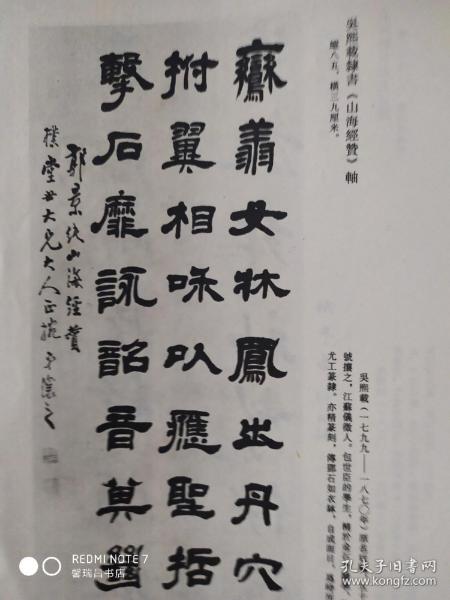 吳熙載隸書《山海經贊》軸
縱八五,橫三九厘米。
鸞翔女牀鳳出丹穴
拊翼相咊以應聖括
擊石靡詠韶音其𢇍
郭景純山海經贊
樸堂世大兄大人正 弟讓之
吳熙載(一七九九——一八七〇年)原名
號攘之,江蘇儀徵人。包世臣的學生,精於金石
尤工篆隸。亦精篆刻,傳鄧石如衣鉢,自成面目,爲時
REDMI NOTE 7
馨瑞昌书店
孔夫子旧书网